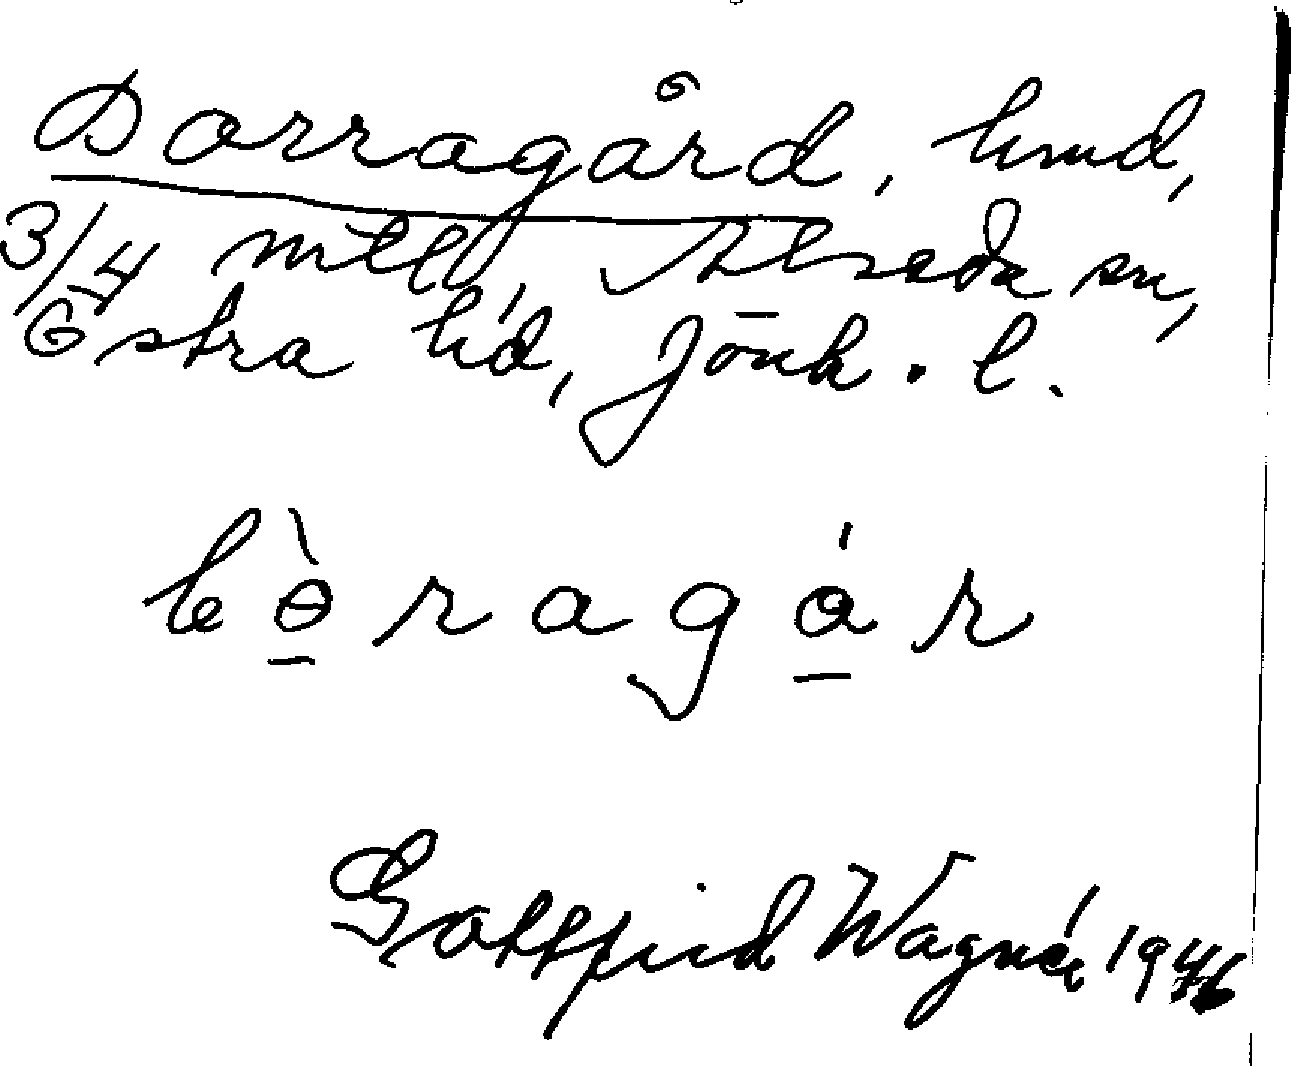 Borragård, hmd,
3/4 mtl, Alseda sn,
Östra hd, Jönk. l.
bɵ̀ragár
Gottfrid Wagnér 1946